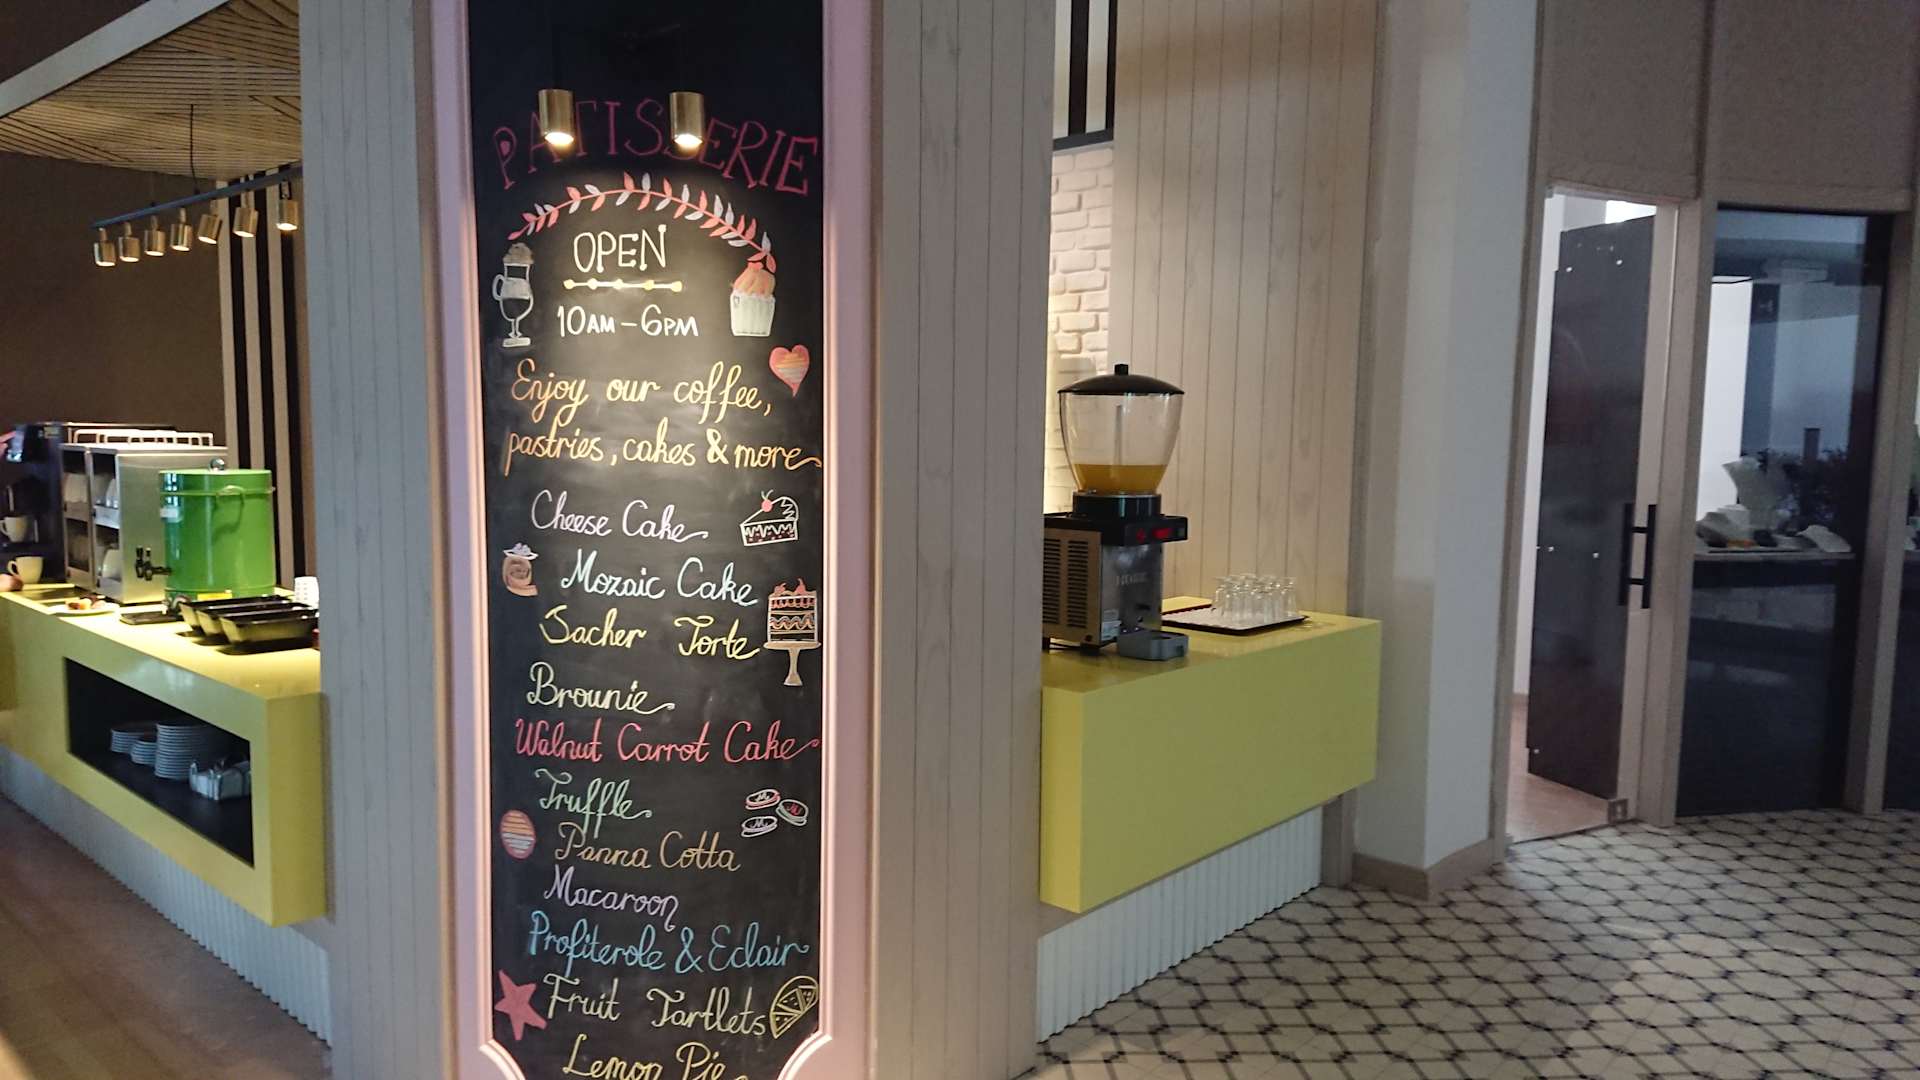 PATISSERIE
OPEN
10AM-6PM
Enjoy our coffee,
pastries, cakes & more
Cheese Cake
Mozaic Cake
Sacher Torte
Brounie
Walnut Carrot Cake
Truffle
Panna Cotta
Macaroon
Profiterole & Eclair
Fruit Tartlets
Lemon Pie